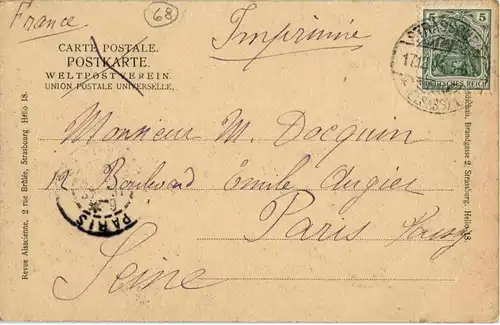 France
68
Imprimée
CARTE POSTALE.
POSTKARTE.
WELTPOSTVEREIN.
UNION POSTALE UNIVERSELLE.
5 5
DEUTSCHES REICH
Monsieur M. Docquin
12 Boulevard Émile Augier
Paris
Seine
PARIS
Revue Alsacienne, 2 rue Brûlée, Strasbourg. Hélio 18.
Brandgasse 2, Strassburg. Helio 18.